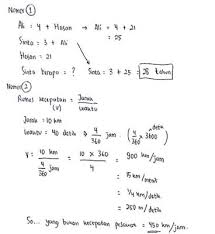 Nomor ①
Ali = 4 + Hasan → Ali = 4 + 21
= 25
Sinta = 3 + Ali
Hasan = 21
Sinta berapa = ? Sinta = 3 + 25 = 28 tahun
Nomor ②
Rumus kecepatan = Jarak
(V) waktu
Jarak = 10 km
waktu = 40 detik → 4 jam
360
V = 10 km = 10 × 360 = 900 km/jam
4 jam 4
360
= 15 km/menit
= 1/4 km/detik
= 250 m/detik
So... yang bukan kecepatan pesawat = 450 km/jam